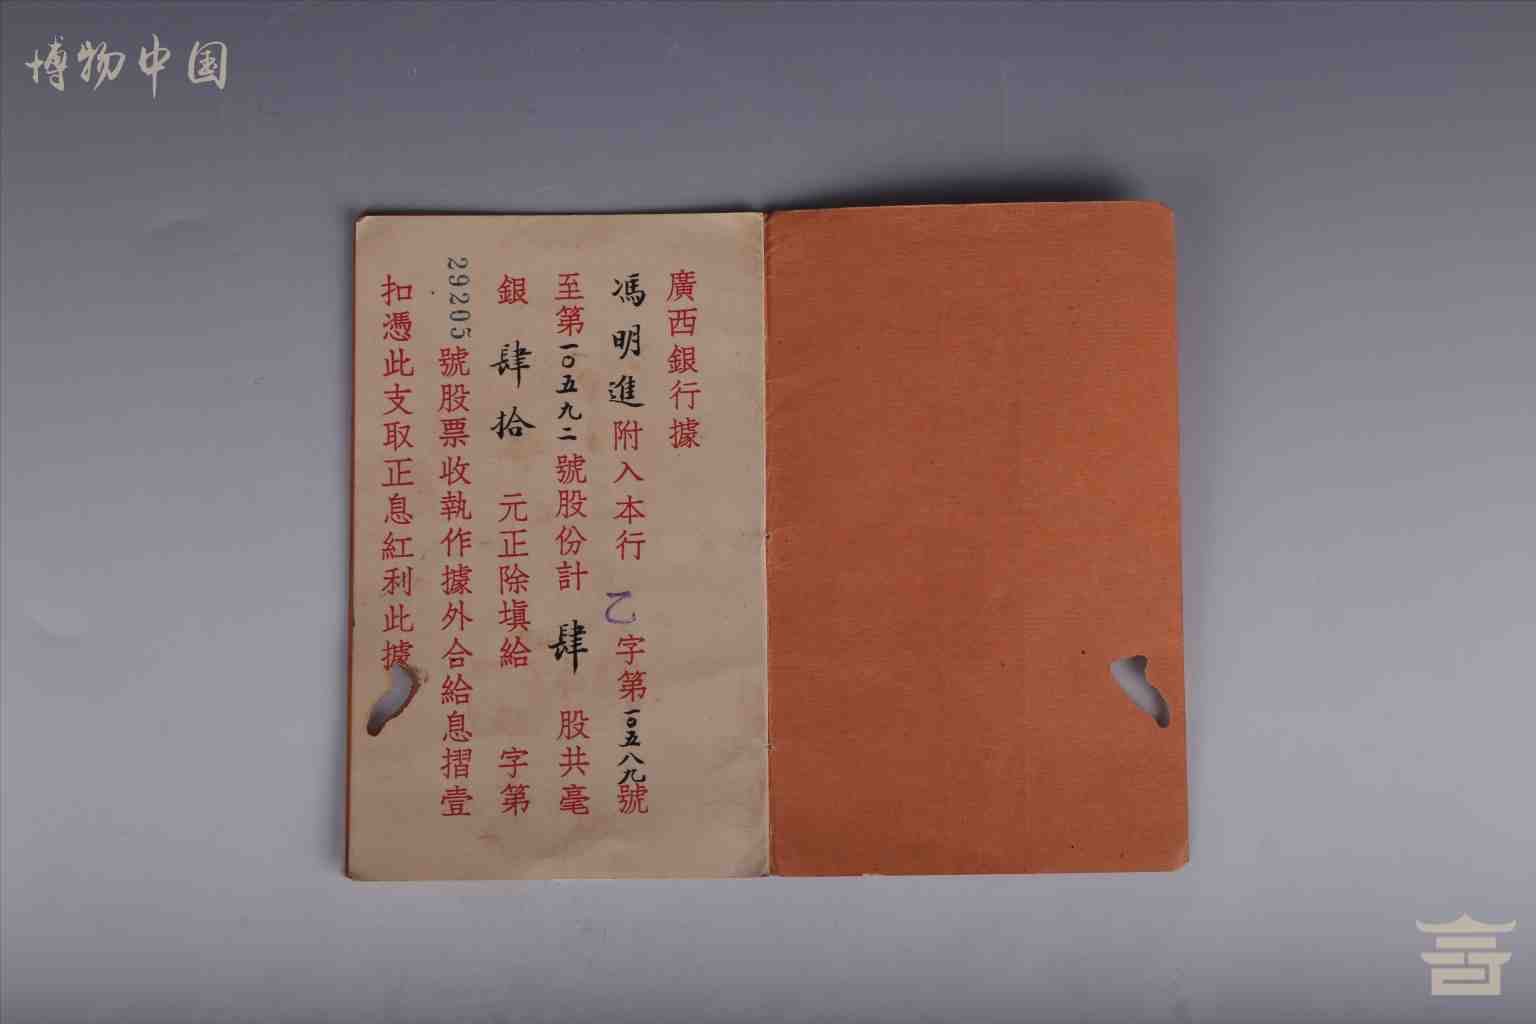 博物中国
廣西銀行據
馮明進附入本行乙字第一〇五八九號
至第一〇五九二號股份計肆股共毫
銀肆拾元正除填給字第
29205號股票收執作據外合給息摺壹
扣憑此支取正息紅利此據